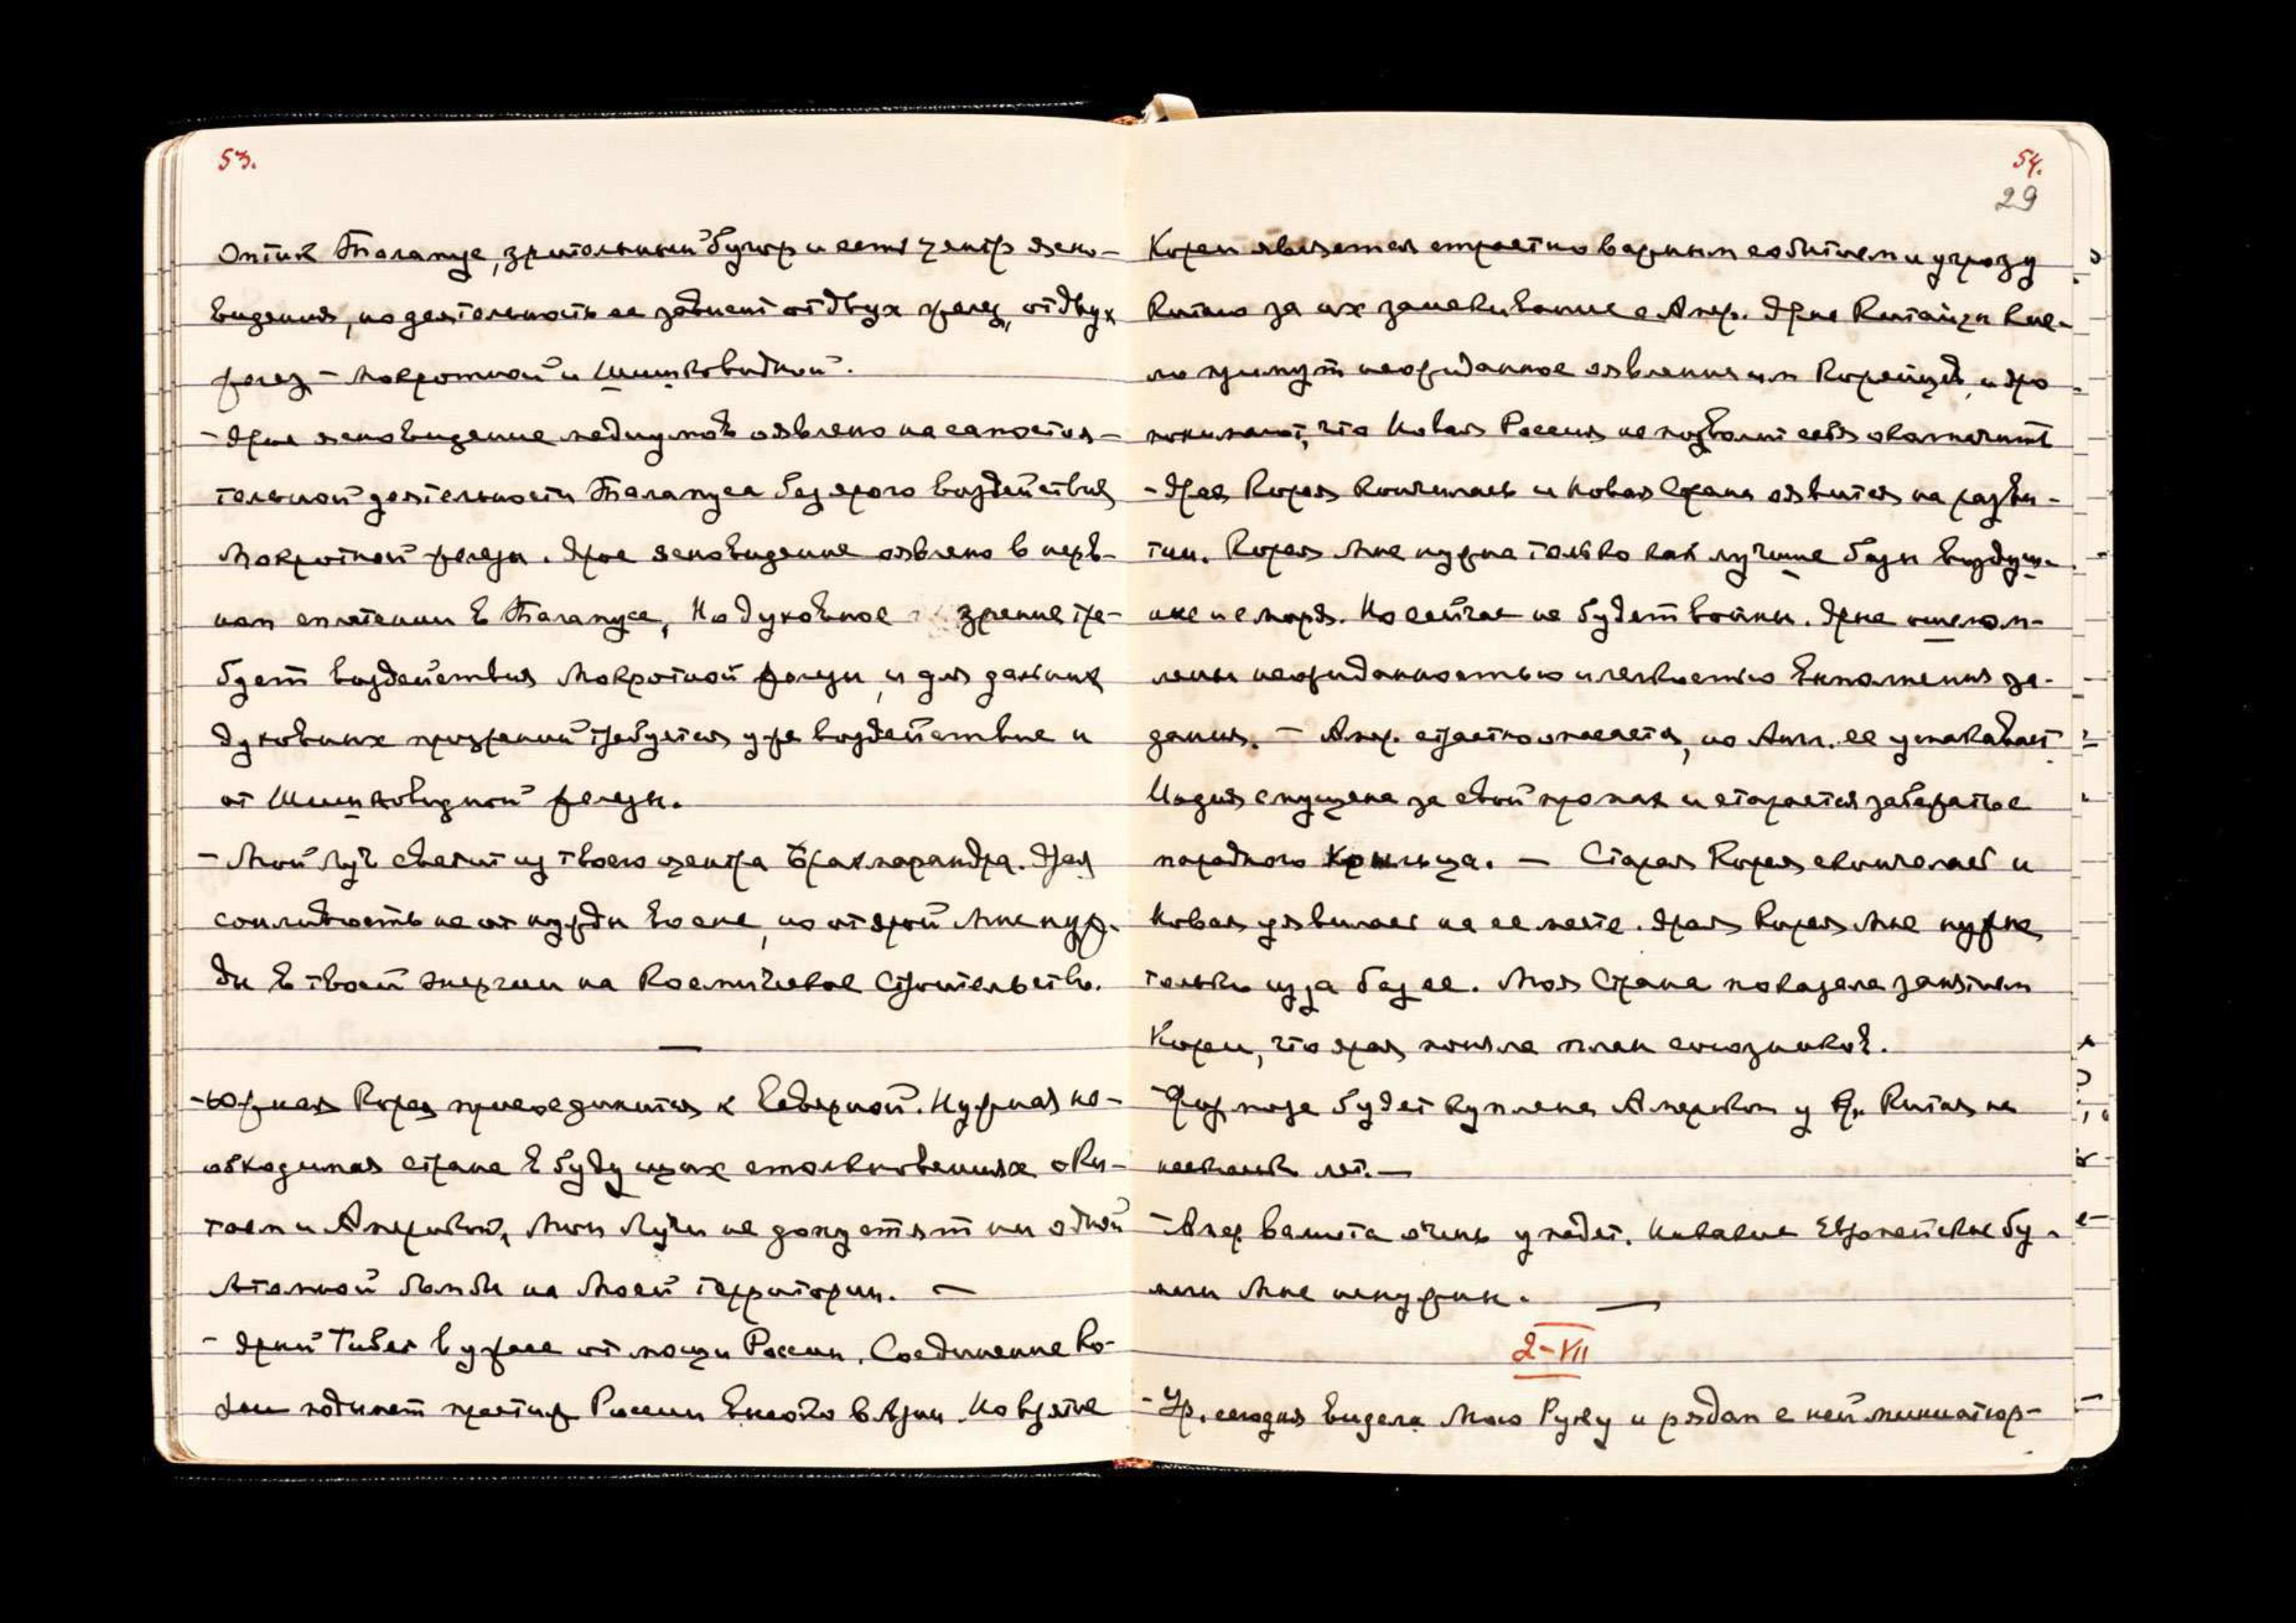 53.
Оптик Таламус, зрительный бугор и есть центр ясно-
видения, но деятельность ее зависит от двух желез, от двух
желез – Мокротной и Шишковидной.
– Ярое ясновидение медиумов оявлено на самостоя-
тельной деятельности Таламуса без ярого воздействия
Мокротной железы. Ярое ясновидение оявлено в нерв-
ном сплетении в Таламусе, Но духовное зрение тре-
бует воздействия Мокротной железы, и для дальних
духовных прозрений требуется уже воздействие и
от Шишковидной железы.
– Мой Луч светит из твоего центра Брахмарандра. Ярая
сонливость не от нужды во сне, но от ярой Мне нуж-
ды в твоей энергии на Космическое Строительство.
– Южная Корея присоединится к Северной. Нужная не-
обходимая страна в будущих столкновениях с Ки-
таем и Америкой, Мои Лучи не допустят ни одной
Атомной бомбы на Моей территории. –
– Ярый Тибет в ужасе от мощи России. Соединение Ко-
реи подымет престиж России высоко в Азии. Но взятие
54.
29
Кореи является страстно важным событием и угрозу
Китаю за их заискивание с Амер. Ярые Китайцы кис-
ло примут неожиданное оявление им Корейцев, и яро
понимают, что Новая Россия не позволит себя околпачить
– Ярая Корея кончилась и Новая Страна оявится на разви-
тии. Корея Мне нужна только как лучшие базы воздуш-
ные и моря. Но сейчас не будет войны. Ярые ошелом-
лены неожиданностью и легкостью выполнения за-
дания. – Амер. страстно опасается, но Англ. ее успокаивает
Индия смущена за свой промах и старается забежать с
парадного крыльца. – Старая Корея скончалась и
Новая уявилась на ее месте. Ярая Корея Мне нужна
только из за баз ее. Моя Страна показала занятием
Кореи, что ярая поняла план союзников.
– Формоза будет куплена Америкой у Кр. Китая на
несколько лет. –
– Амер валюта очень упадет. Никакие Европейские бу-
маги Мне не нужны.
2–VII
– Ур. сегодня видела Мою Руку и рядом с ней миниатюр-